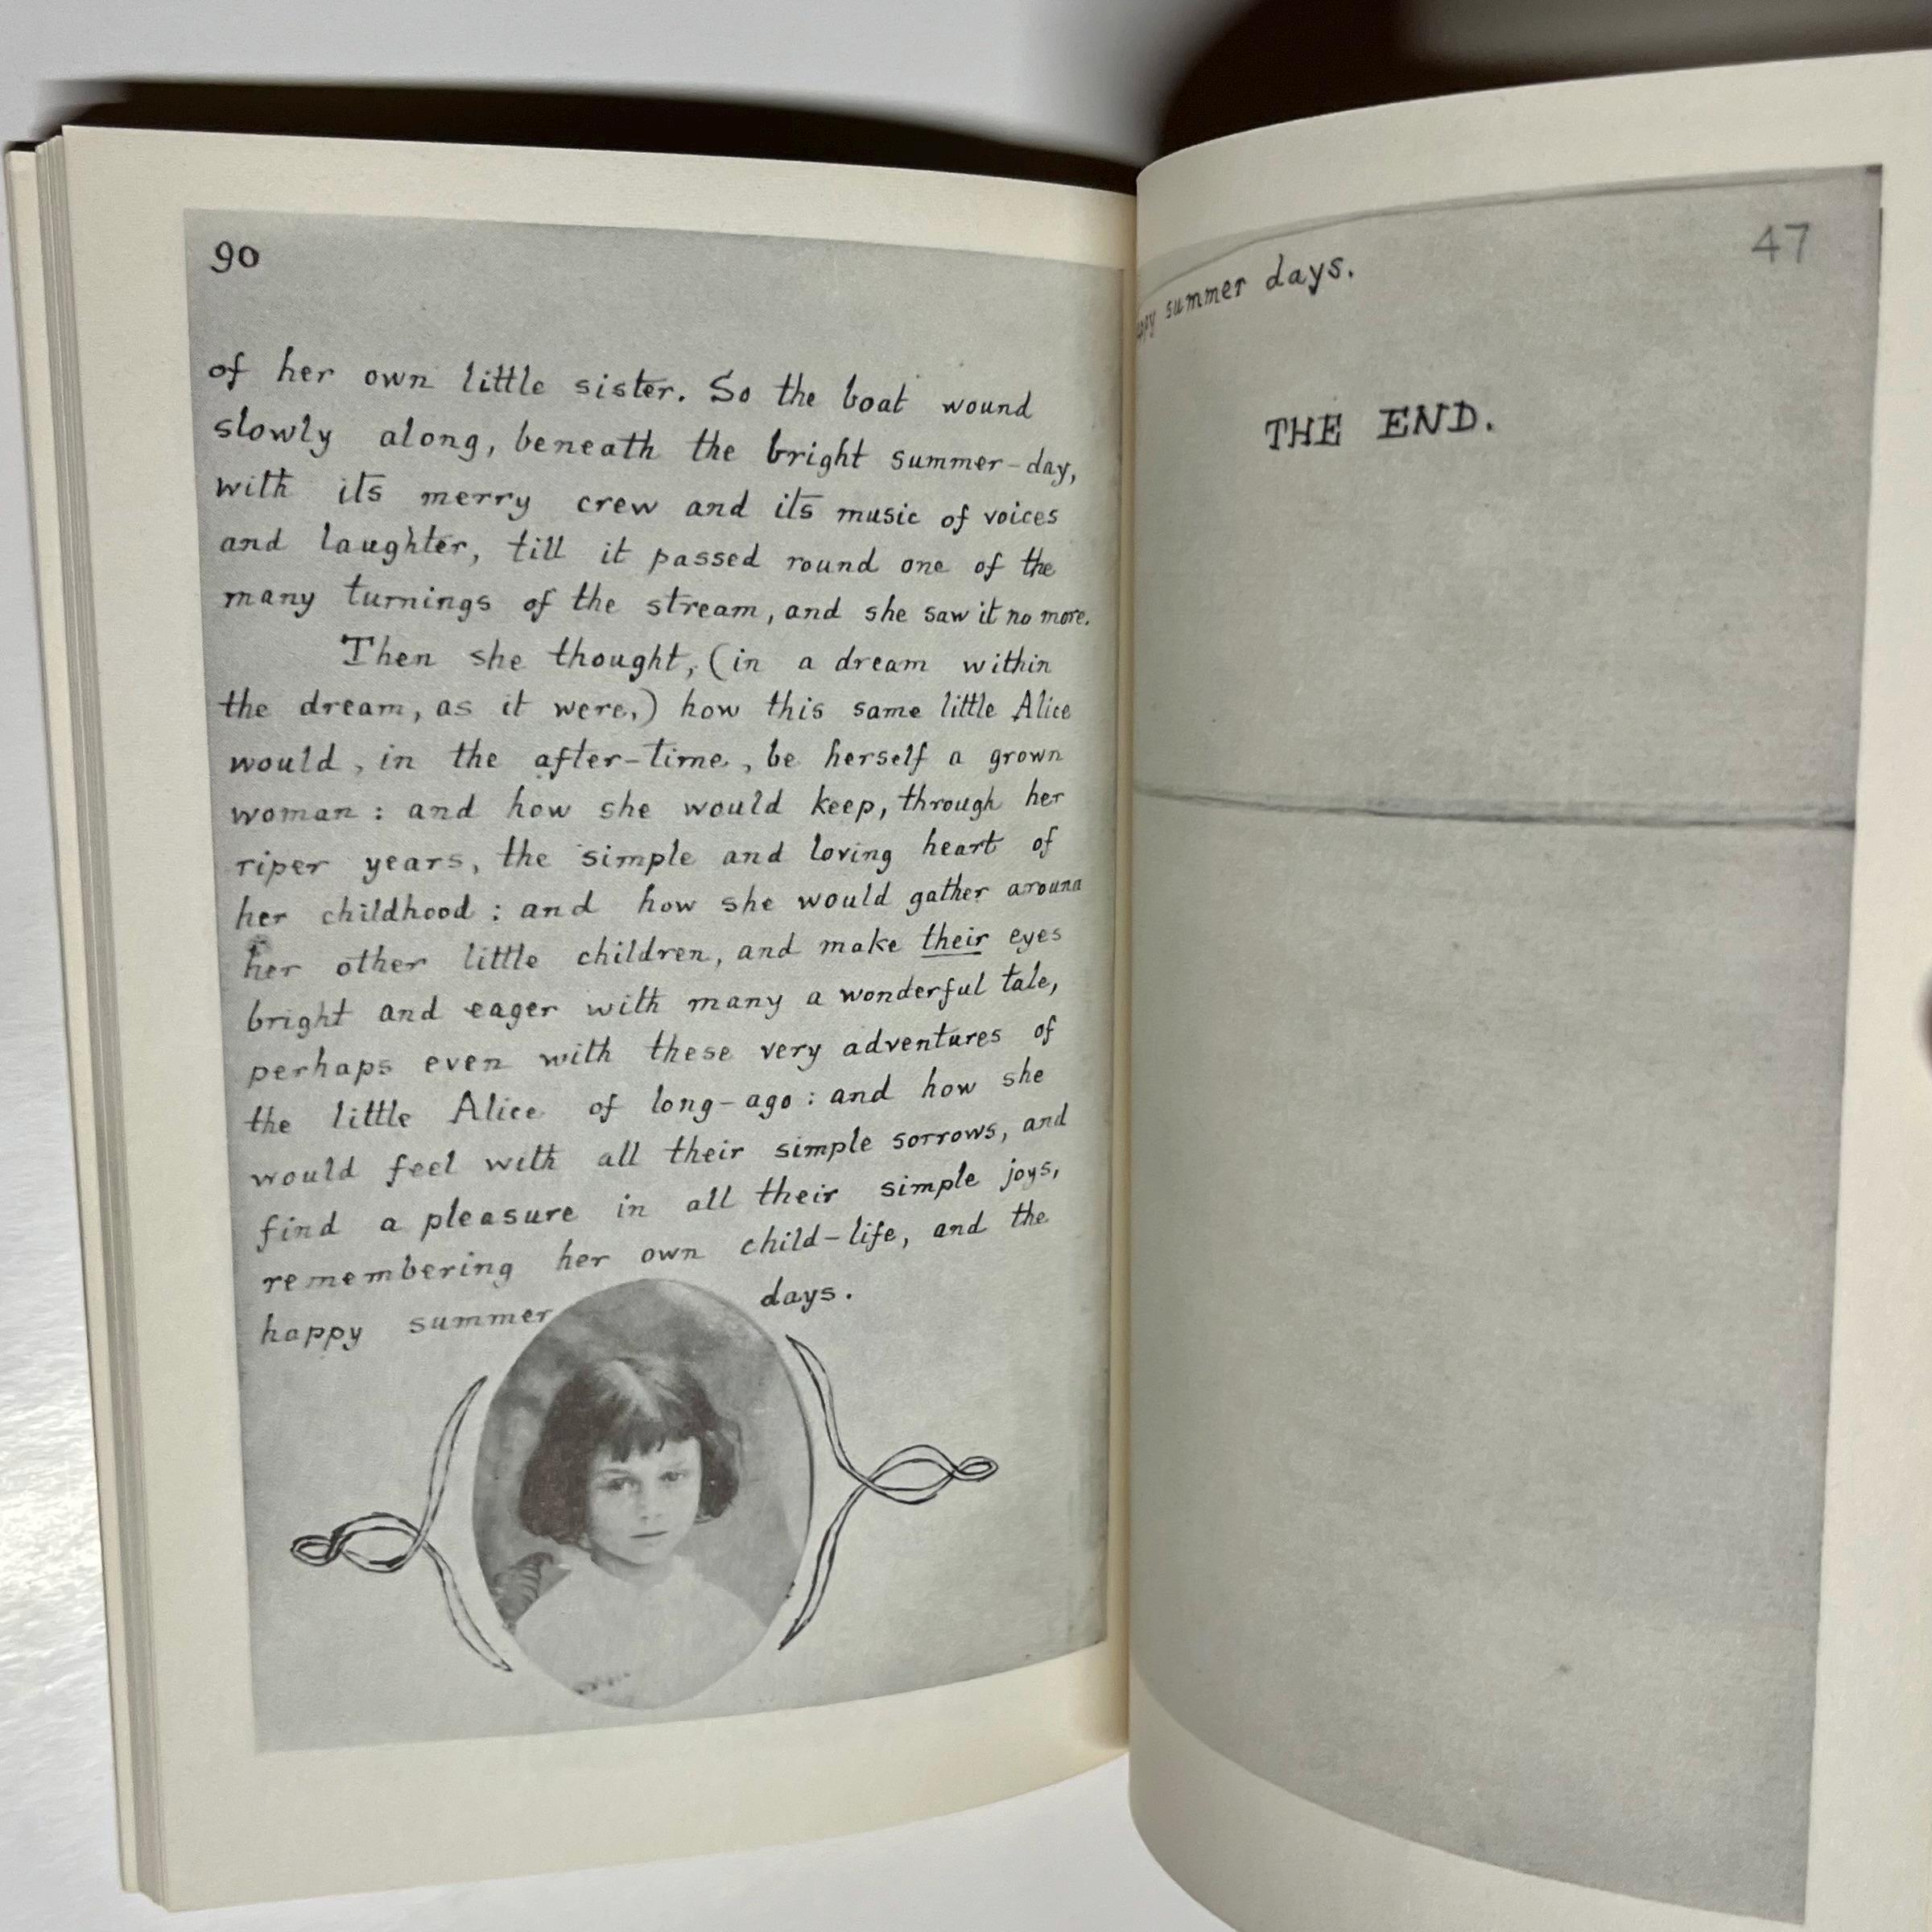 90
of her own little sister. So the boat wound
slowly along, beneath the bright summer-day,
with its merry crew and its music of voices
and laughter, till it passed round one of the
many turnings of the stream, and she saw it no more.
Then she thought, (in a dream within
the dream, as it were,) how this same little Alice
would, in the after-time, be herself a grown
woman: and how she would keep, through her
riper years, the simple and loving heart of
her childhood: and how she would gather around
her other little children, and make their eyes
bright and eager with many a wonderful tale,
perhaps even with these very adventures of
the little Alice of long-ago: and how she
would feel with all their simple sorrows, and
find a pleasure in all their simple joys,
remembering her own child-life, and the
happy summer days.
47
summer days.
THE END.